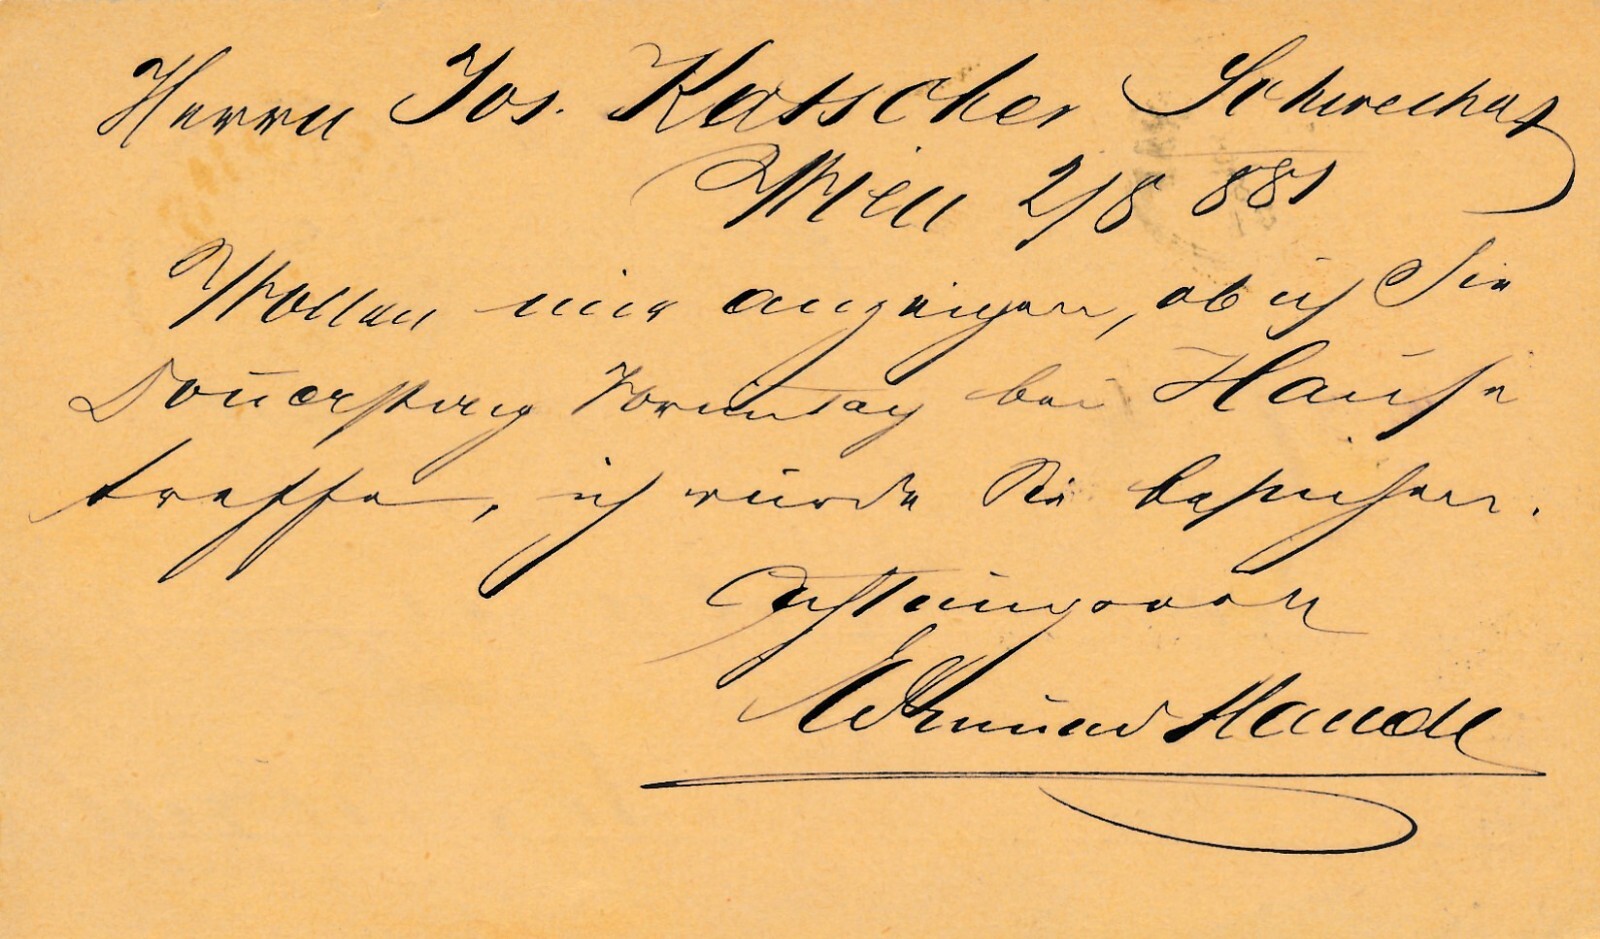 Herrn Jos. Katscher Schwechat
Wien 2/8 881
Wollen mir anzeigen, ob ich Sie
Donnerstag Vormittag bei Hause
treffe, ich würde Sie besuchen.
Achtungsvoll
Edmund